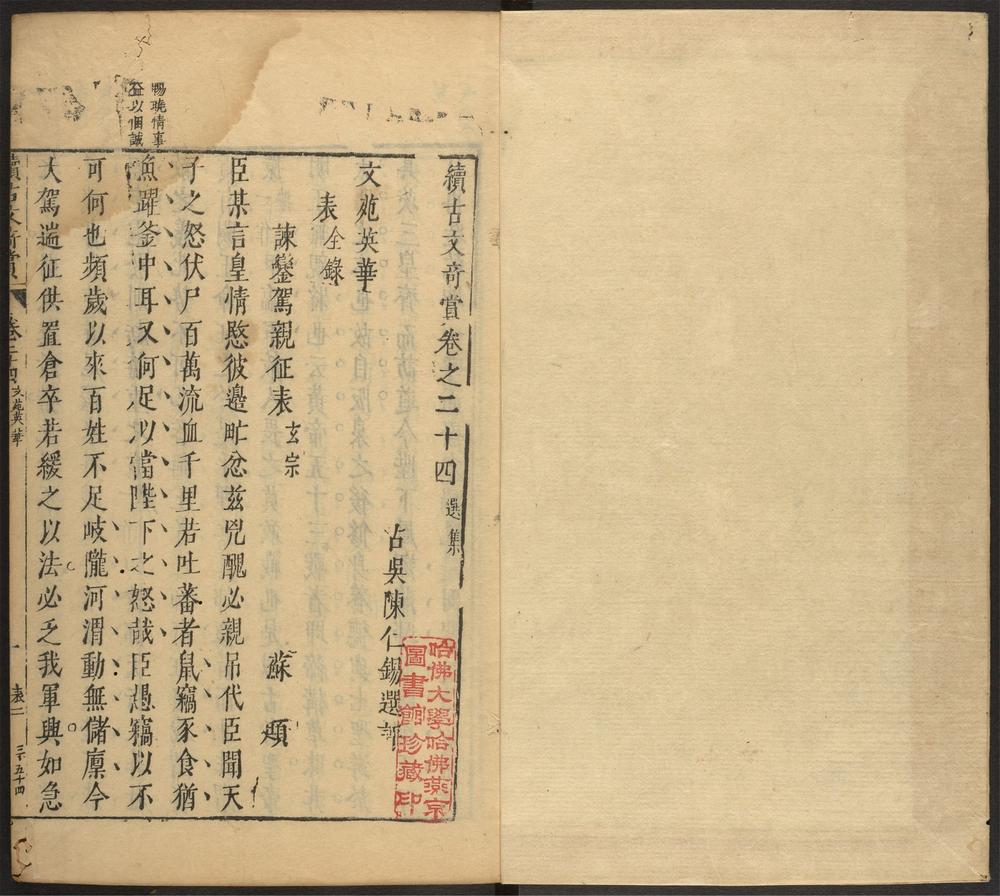 續古文奇賞卷之二十四 選集
古吳陳仁錫選評
文苑英華
表全錄
諫鑾駕親征表 玄宗 蘇頲
臣某言皇情愍彼邊甿忿茲兇醜必親吊代臣聞天
子之怒伏尸百萬流血千里若吐蕃者鼠竊豕食猶
魚躍釜中耳又何足以當陛下之怒哉臣愚竊以不
可何也頻歲以來百姓不足岐隴河渭動無儲廩今
大駕遄征供置倉卒若緩之以法必乏我軍興如急
賜曉情事
益以悃誠
續古文奇賞 卷二十四 文苑英華 一 表二 三千五十四
哈佛大學哈佛燕京
圖書館珍藏印